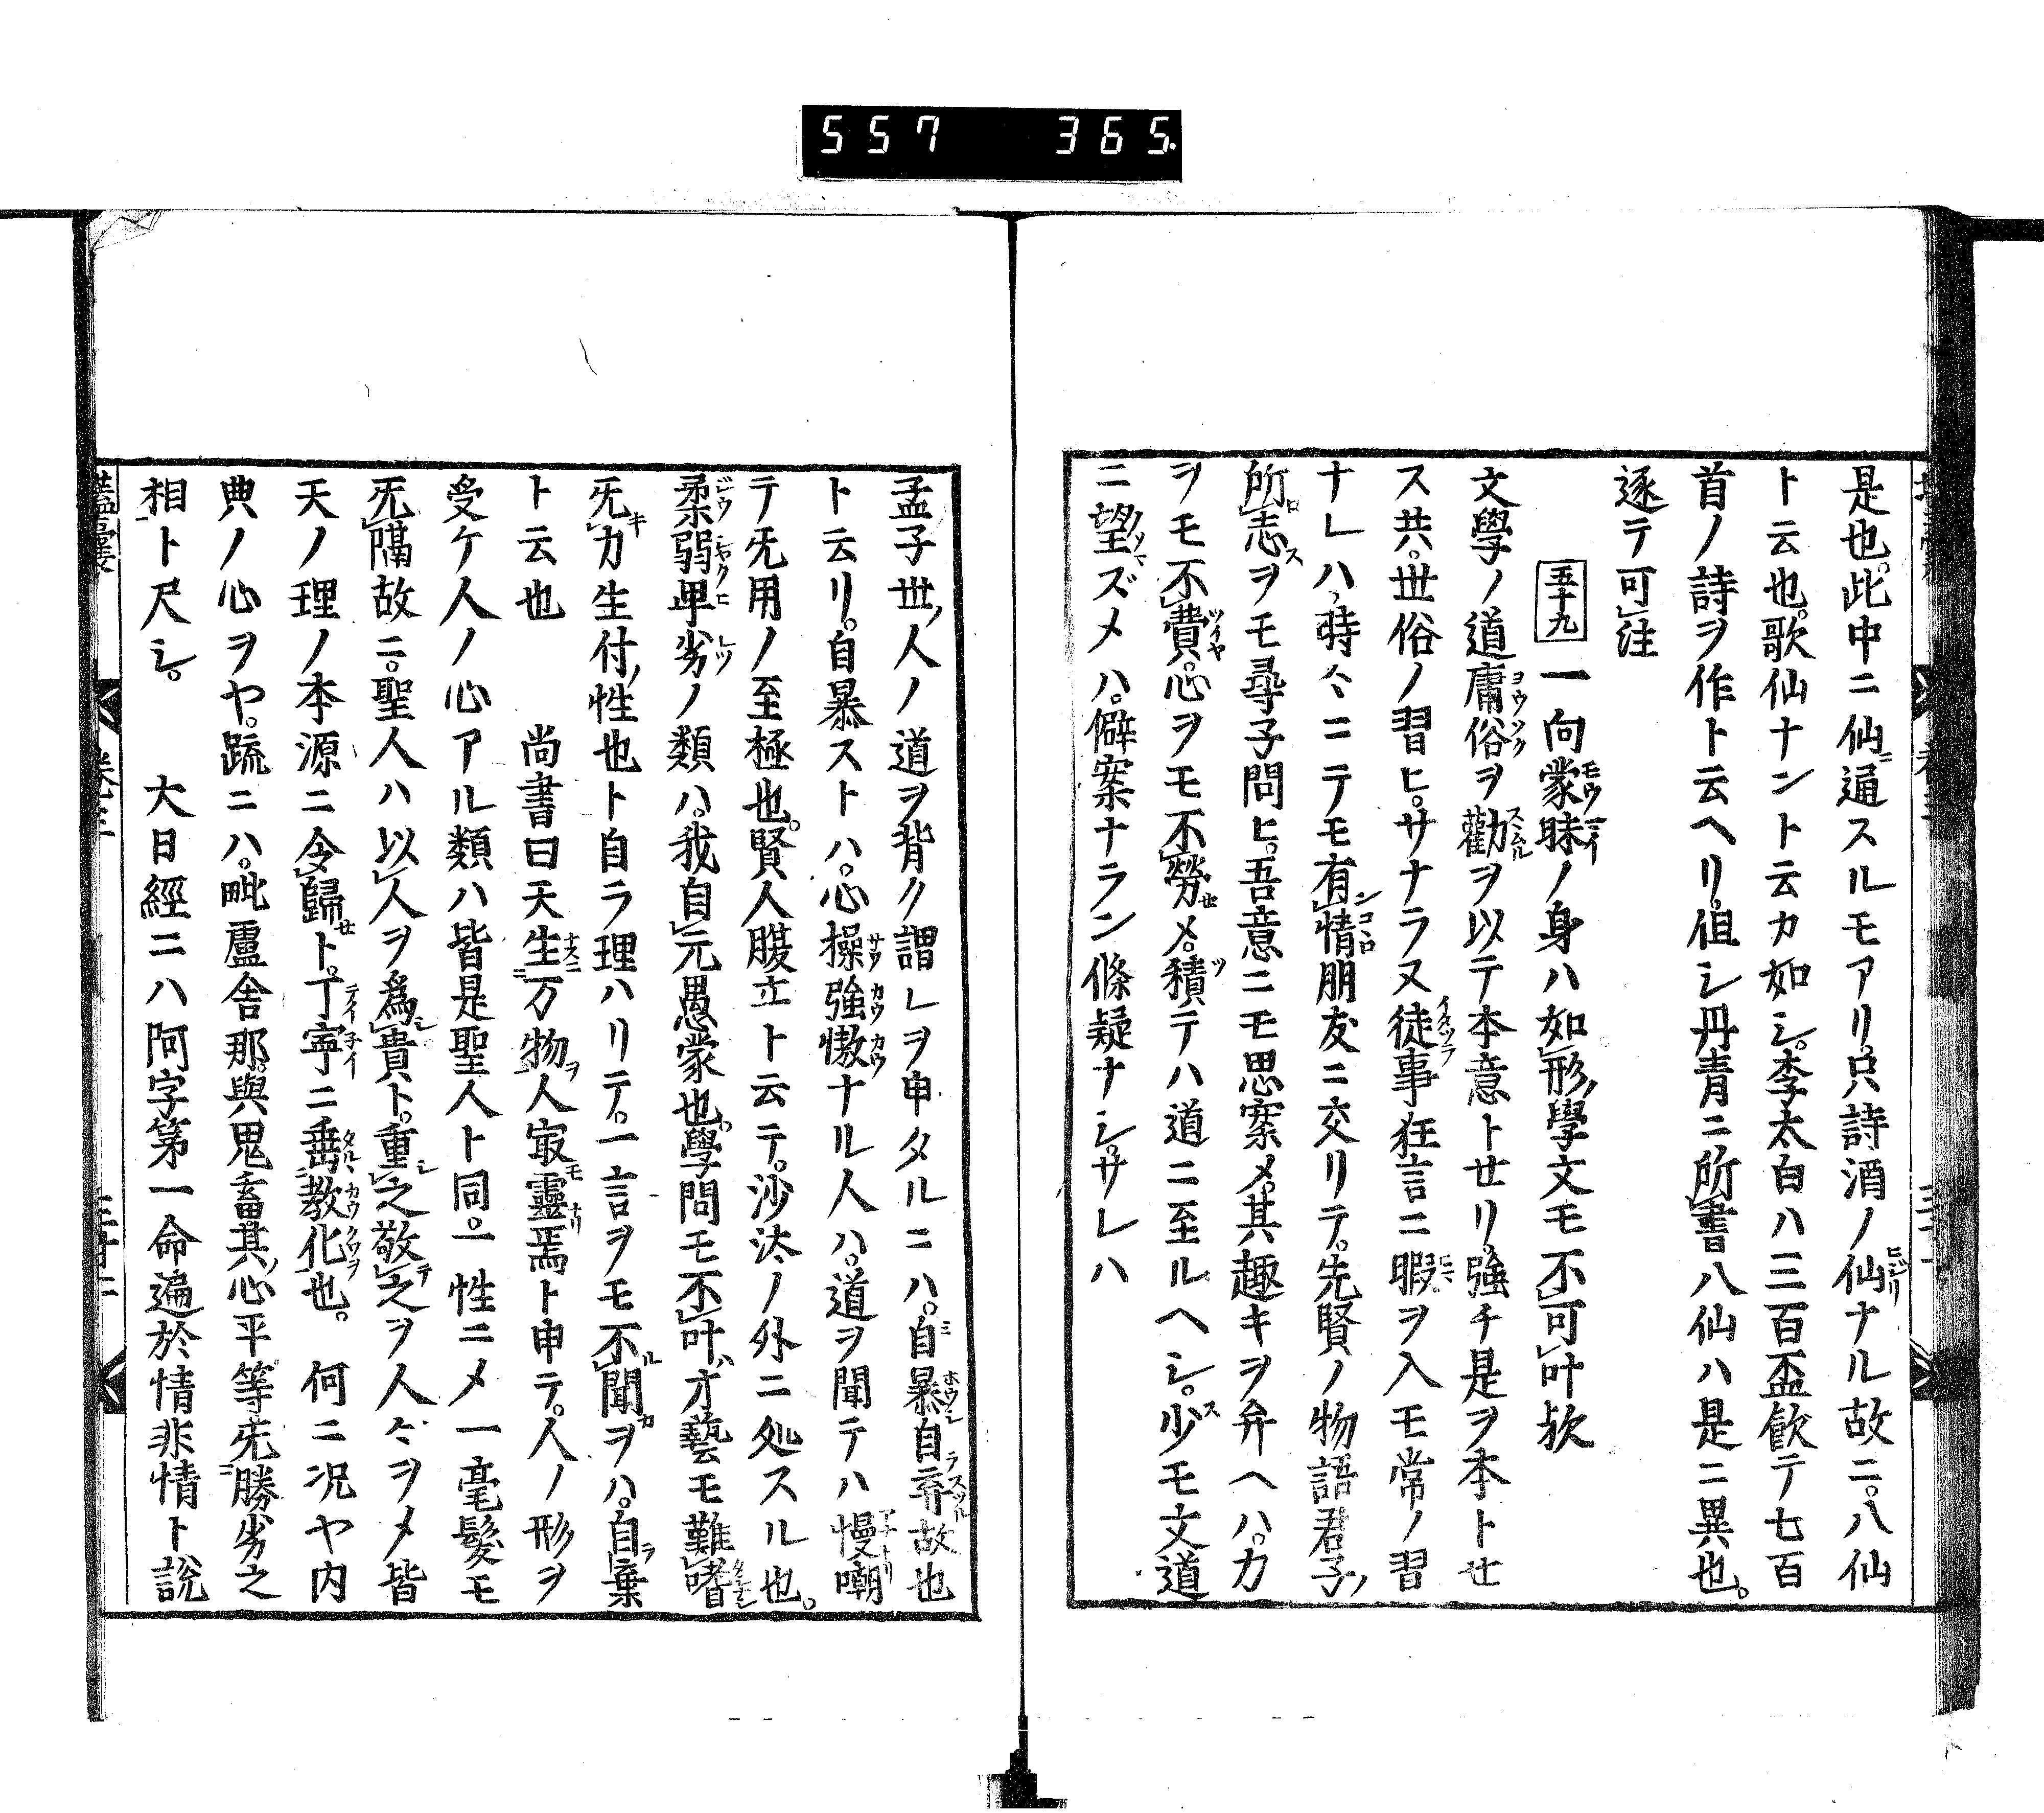 557 365.
是也。此中ニ仙ニ通スルモアリ。只詩酒ノ仙ナル故ニ。八仙
ト云也。歌仙ナントト云カ如シ。李太白ハ三百盃飲テ七百
首ノ詩ヲ作ト云ヘリ。但シ丹青ニ所書八仙ハ是ニ異也。
逐テ可注
五十九 一向蒙昧ノ身ハ如形學文モ不可叶欤
文學ノ道庸俗ヲ勸ヲ以テ本意トせリ。強チ是ヲ本トせ
ス共。世俗ノ習ヒ。サナラヌ徒事狂言ニ暇ヲ入モ常ノ習
ナレハ。時々ニテモ有情朋友ニ交リテ。先賢ノ物語君子ノ
所志ヲモ尋子問ヒ。吾意ニモ思案メ。其趣キヲ弁ヘハ。力
ヲモ不費。心ヲモ不勞メ。積テハ道ニ至ルヘシ。少モ文道
ニ望ズメハ。僻案ナラン條疑ナシ。サレハ
孟子世ノ人ノ道ヲ背ク謂レヲ申タルニハ。自暴自弃故也
ト云リ。自暴ストハ。心操強慠ナル人ハ。道ヲ聞テハ慢嘲
テ旡用ノ至極也。賢人腹立ト云テ。沙汰ノ外ニ処スル也。
柔弱卑劣ノ類ハ。我自元愚蒙也。學問モ不叶。才藝モ難嗜
旡力生付ノ性也ト自ラ理ハリテ。一言ヲモ不聞ヲハ。自棄
ト云也　尚書曰天生万物人㝡靈焉ト申テ。人ノ形ヲ
受ケ人ノ心アル類ハ皆是聖人ト同一性ニメ一毫髮モ
旡隔故ニ。聖人ハ以人ヲ爲貴ト。重之敬之ヲ人々ヲメ皆
天ノ理ノ本源ニ令歸ト。丁寧ニ垂教化也。何ニ况ヤ内
典ノ心ヲヤ。䟽ニハ。毗盧舎那。與鬼畜其心平等旡勝劣之
相ト尺シ。　大日經ニハ阿字第一命遍於情非情ト説